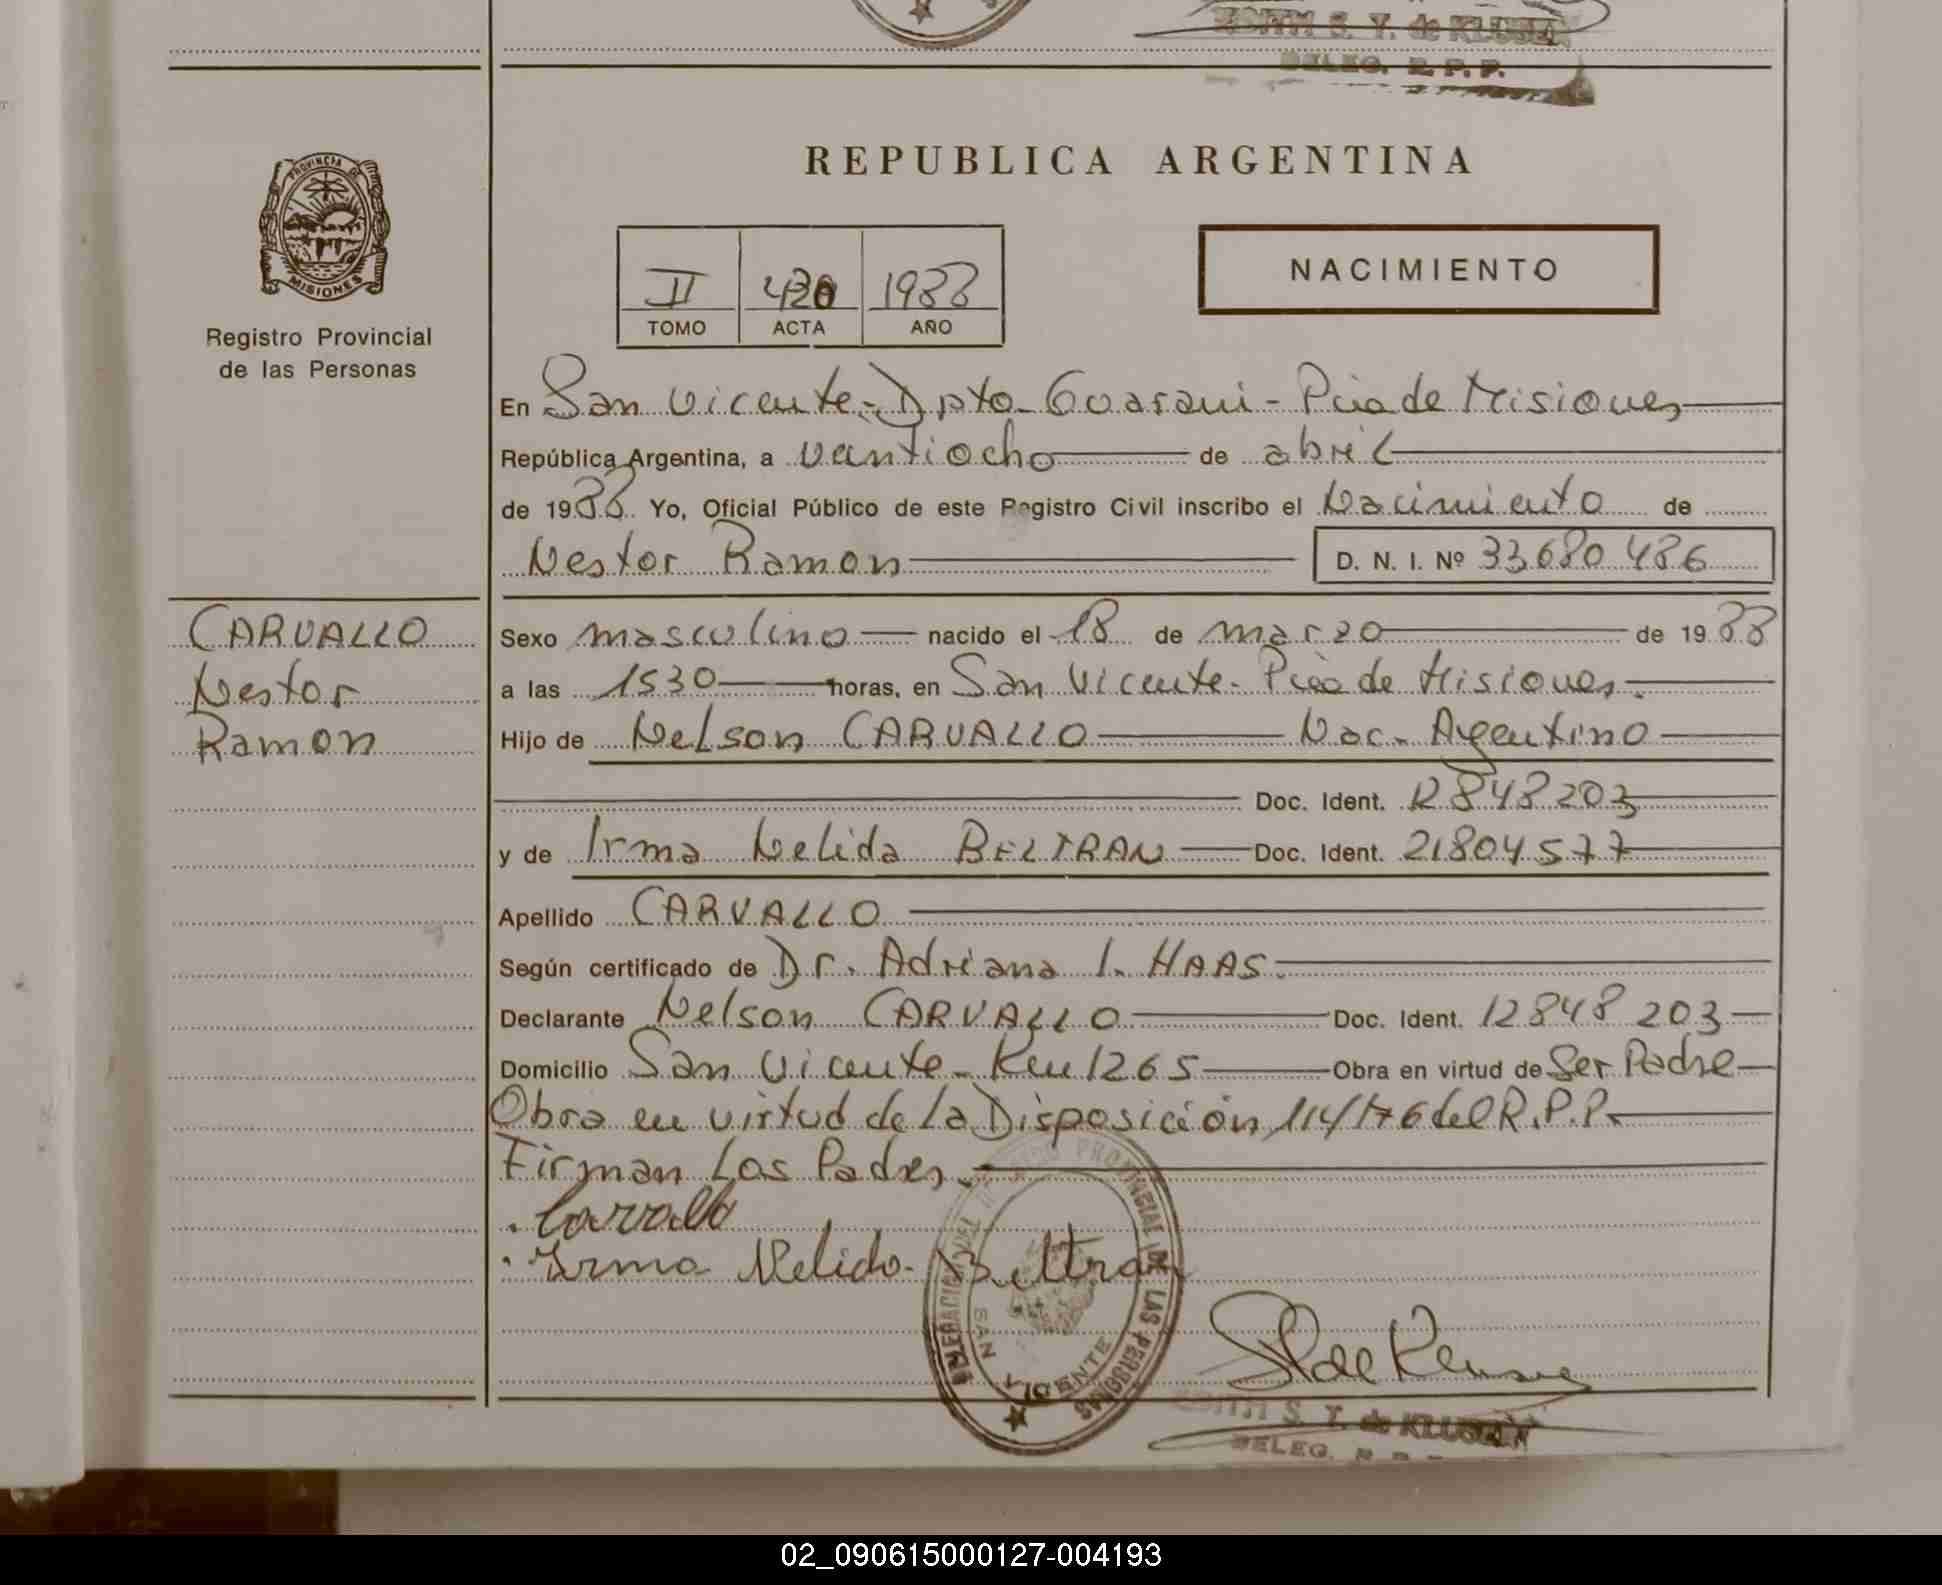 EDITH S. T. de KLUSENER
DELEG. R. P. P.
REPUBLICA ARGENTINA
PROVINCIA DE
MISIONES
Registro Provincial
de las Personas
II 420 1988
TOMO ACTA AÑO
NACIMIENTO
En San Vicente - Dpto - Guarani - Pcia de Misiones
República Argentina, a ventiocho de abril
de 1988 Yo, Oficial Público de este Registro Civil inscribo el Nacimiento de
Nestor Ramon D. N. I. Nº 33680486
CARVALLO
Nestor
Ramon
Sexo masculino nacido el 18 de marzo de 1988
a las 1530 horas, en San Vicente - Pcia de Misiones.
Hijo de Nelson CARVALLO Nac. Argentino
Doc. Ident. 12848203
y de Irma Nelida BELTRAN Doc. Ident. 21804577
Apellido CARVALLO
Según certificado de Dr. Adriana I. HAAS.
Declarante Nelson CARVALLO Doc. Ident. 12848203
Domicilio San Vicente - Km 1265 Obra en virtud de Ser Padre
Obra en virtud de la Disposición 114/76 del R.P.P.
Firman Los Padres.
Carvallo
Irma Nelida Beltran
DELEGACION DEL REGISTRO PROVINCIAL DE LAS PERSONAS
SAN VICENTE
EDITH S. T. de KLUSENER
DELEG. R. P.
02_090615000127-004193